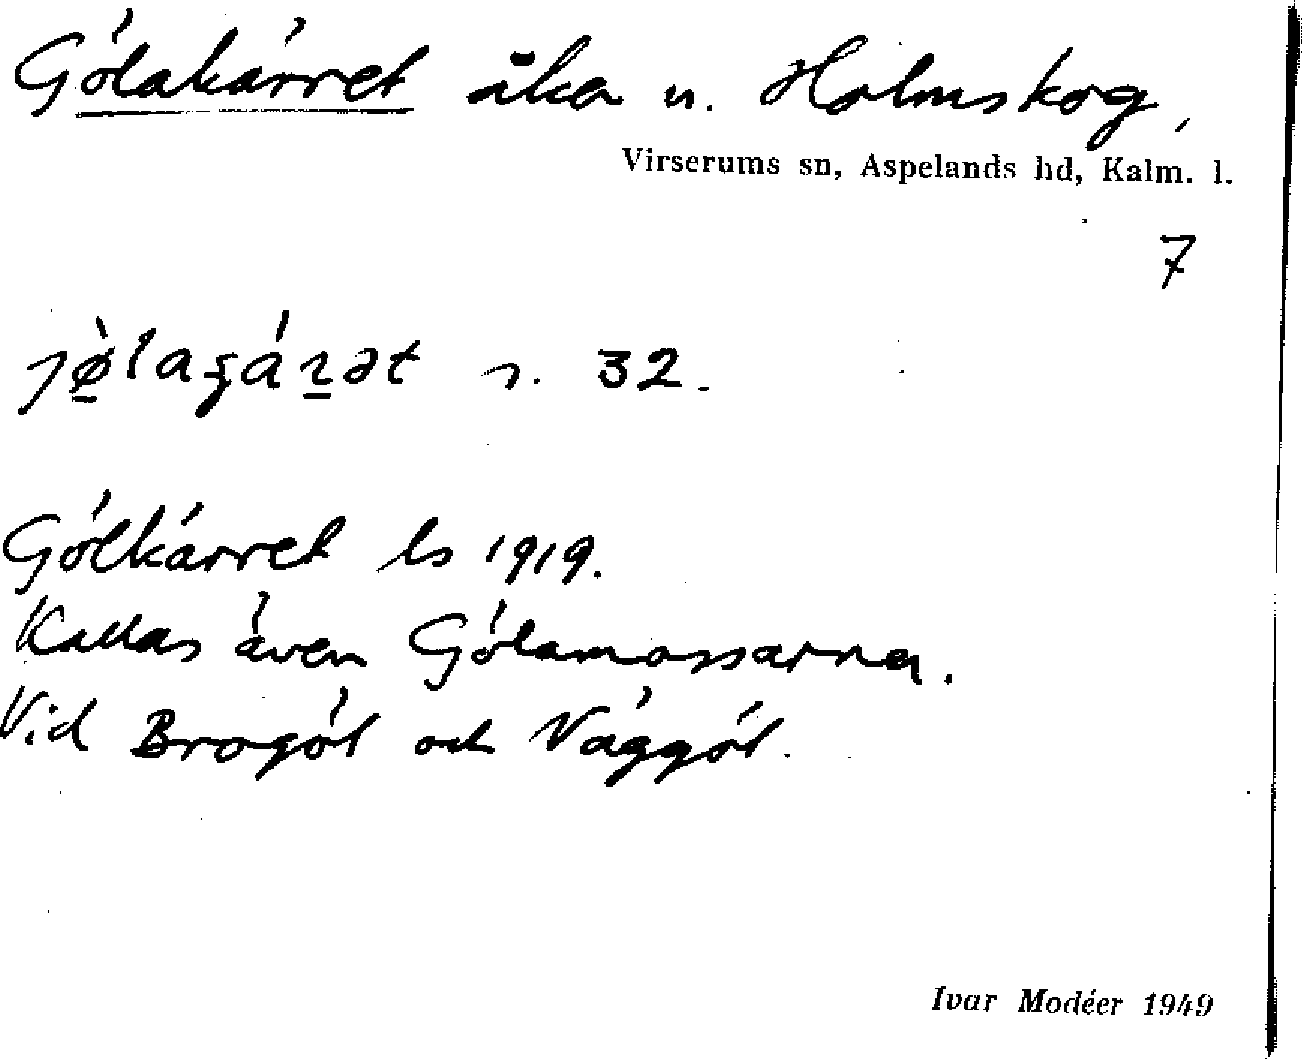 Gölakärret åker n. Holmskog,
Virserums sn, Aspelands hd, Kalm. l.
7
s. 32.
Gölkärret ls 1919.
Kallas även Gölamossarna.
Vid Brogöl och Väggöl.
Ivar Modéer 1949